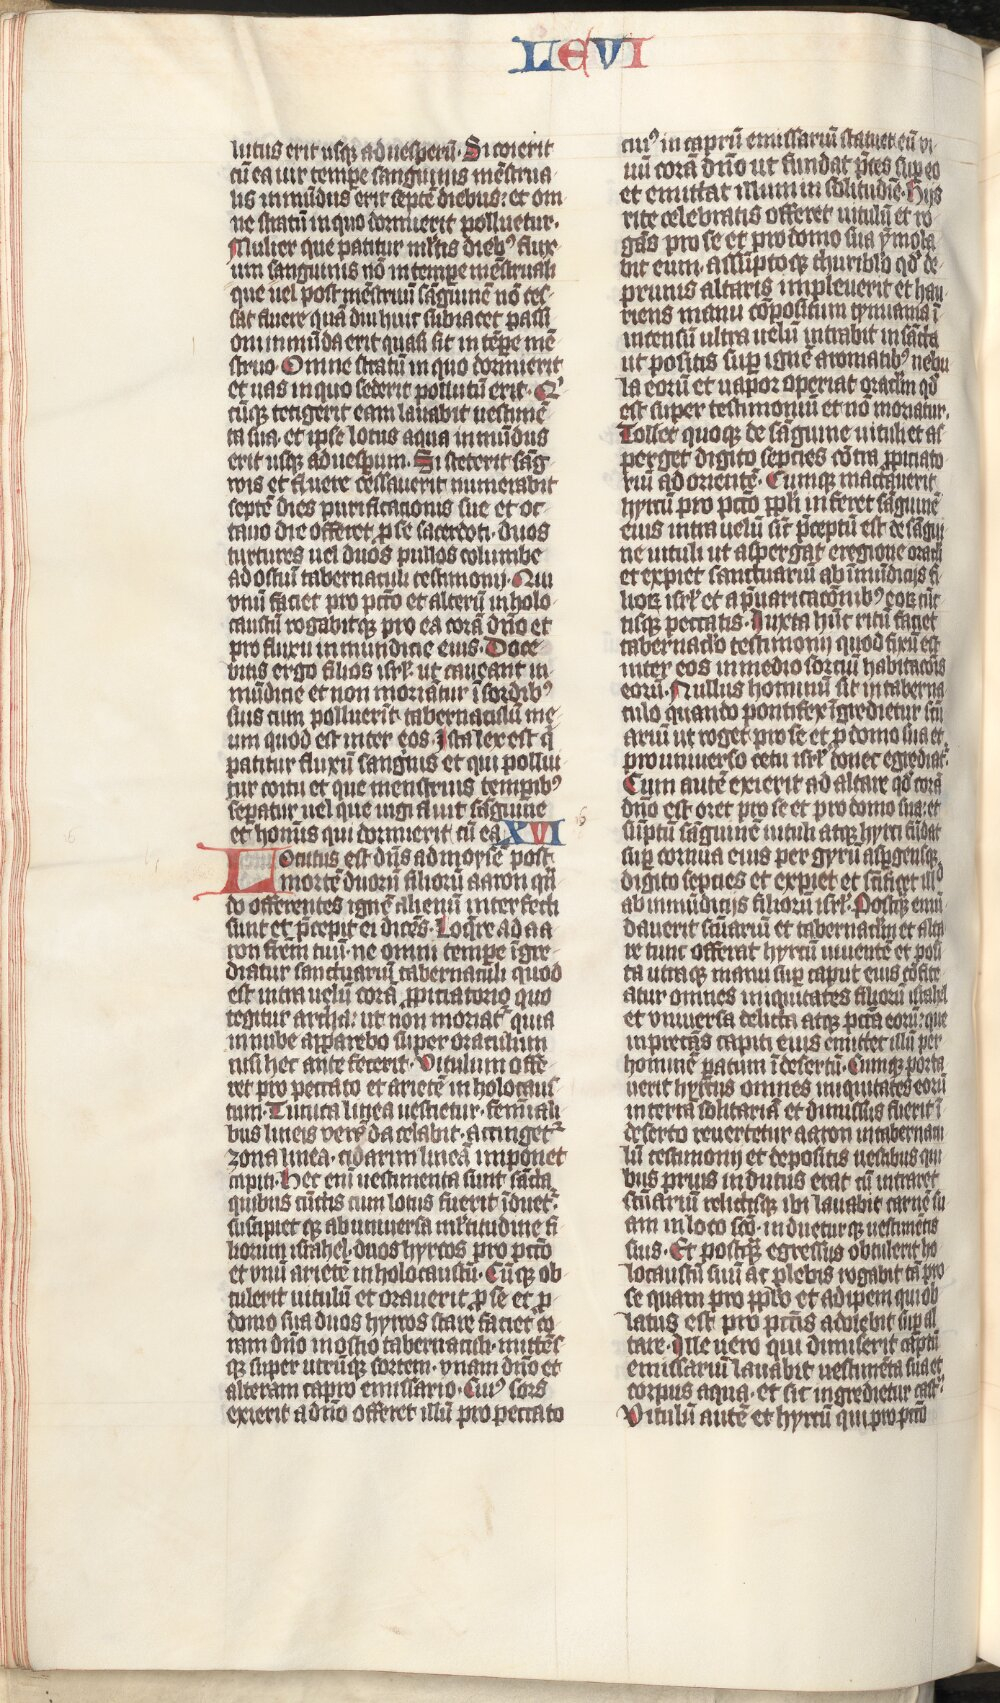 LEVI
lutus erit usq; ad vesperū. Si coierit
cū ea vir tempe sanguinis mēstrua-
lis inmūdus erit septē diebus: et om
ne stratū in quo dormierit polluetur.
Mulier que patitur ml'tis dieb9 flux
um sanguinis nō in tempe mēstruali
que uel post mēstruū sāguinē nō ces-
sat fluere quā diu huic subiacet passi
oni inmūda erit quasi sit in tēpe mē
struo. Omne stratū in quo dormierit
et uas in quo sederit pollutū erit. Q'
cūq; tetigerit eam lauabit uestimē
ta sua. et ipse lotus aqua inmūdus
erit usq; ad uesperum. Si steterit sāg
wis et fluere cessauerit numerabit
septē dies purificationis sue et oc-
tauo die offeret p se sacerdoti. duos
turtures uel duos pullos columbe
ad ostiū tabernaculi testimonij. Qui
vnū faciet pro pctō et alterū in holo
caustū rogabitq; pro ea corā dn̄o et
pro fluxu inmundicie eius. Doce-
bitis ergo filios isrl' ut caueant in-
mūdicie et non moriatur ī sordib9
suis cum polluerit tabernaculū me-
um quod est inter eos. Ista lex est q'
patitur fluxū sanguis et qui pollui-
tur coitu et que menstruis tempib9
separatur uel que iugi fluit sāguine
et hom̄s qui dormierit cū ea XVI
Locutus est dn̄s ad moysē post
mortē duorū filiorū aaron qn̄
do offerentes ignē alienū interfecti
sunt et p̄cepit ei dicēs. Loq̄re ad aa
ron fr̄em tuū. ne omni tempe īgre-
diatur sanctuariū tabernaculi quod
est intra uelū corā ppiciatorio quo
tegitur archa: ut non moriat' quia
in nube apparebo super oraculum
nisi hec ante fecerit. Vitulum offe-
ret pro peccato et arietē in holocaus
tum. Tunica linea uestietur. feminali-
bus lineis verēda celabit. accinget'
zona linea. cidarim lineā imponet
capiti. Hec enī uestimenta sunt sācta
quibus cūctis cum lotus fuerit īduet'.
suscipiet q; ab uniuersa ml'titudine fi-
liorum israhel. duos hyrcos pro pctō
et vnū arietē in holocaustū. Cūq; ob
tulerit uitulū et orauerit p se et p
domo sua duos hyrcos stare faciet co-
ram dn̄o in ostio tabernaculi. mittēs
q; super utrūq; sortem. vnam dn̄o et
alteram capro emissario. Cui9 sors
exierit a dn̄o offeret illū pro peccato
cui9 in caprū emissariū statuet eū vi-
uū corā dn̄o ut fundat p̄ces sup eo
et emittat illum in solitudiē. Hijs
rite celebratis offeret uitulū et ro-
gās pro se et pro domo sua ymola-
bit eum. assūptoq; thuribl'o qd' de-
prunis altaris impleuerit et hau-
riens manu cōpositum tymiama ī
incensū ultra uelū intrabit in sācta
ut positis sup ignē aromatib9 nebu
la eorū et uapor operiat oraclm qd'
est super testimoniū et nō moriatur.
Tollet quoq; de sāguine uituli et as
perget digito septies cōtra ppiciato-
riū ad orientē. Cumq; mactauerit
hyrcū pro pctō ppli inferet sāguinē
eius intra uelū sic p̄ceptū est de sāgui
ne uituli ut aspergat e regione oracli
et expiet sanctuariū ab īmūdicijs fi
lior; isrl' et a p̄uaricacōnib9 eor; cūc
tisq; peccatis. Iuxta hūc ritū faciet
tabernaclo testimonij quod fixū est
inter eos in medio sorciū habitacōis
eorū. Nullus hominū sit in taberna
culo quando pontifex īgredietur scū
ariū ut roget pro se et p domo sua et
pro uniuerso cetu isrl' donec egrediat'.
Cum autē exierit ad altare qd' corā
dn̄o est oret pro se et pro domo sua: et
sūptū sāguinē uituli atq; hyrci fūdat
sup cornua eius per gyrū asp̄gensq;
digito septies et expiet et scīficet ill'd
ab inmūdicijs filiorū isrl'. Postq; emū
dauerit scūariū et tabernaclm et alta
re tunc offerat hyrcū uiuentē et posi
ta utraq; manu sup caput eius cōfite
atur omnes iniquitates filiorū israhel
et vniuersa delicta atq; pctā eorū: que
inprecās capiti eius emittet illū per
hominē paratum ī desertū. Cumq; porta
uerit hyrcus omnes iniquitates eorū
in terrā solitariā et dimissus fuerit ī
deserto reuertetur aaron in tabernacu
lū testimonij et depositis uestibus qui
bus prius indutus erat cū intraret
scūariū relictisq; ibi lauabit carnē su
am in loco scō. induetur q; uestimētis
suis. Et postq; egressus obtulerit ho
locaustū suū ac plebis rogabit tā pro
se quam pro pplo et adipem qui ob
latus est pro pctīs adolebit sup al
tare. Ille uero qui dimiserit caprū
emissariū lauabit uestimēta sua et
corpus aqua. et sic ingredietur castr'.
Vitulū autē et hyrcū qui pro pctō